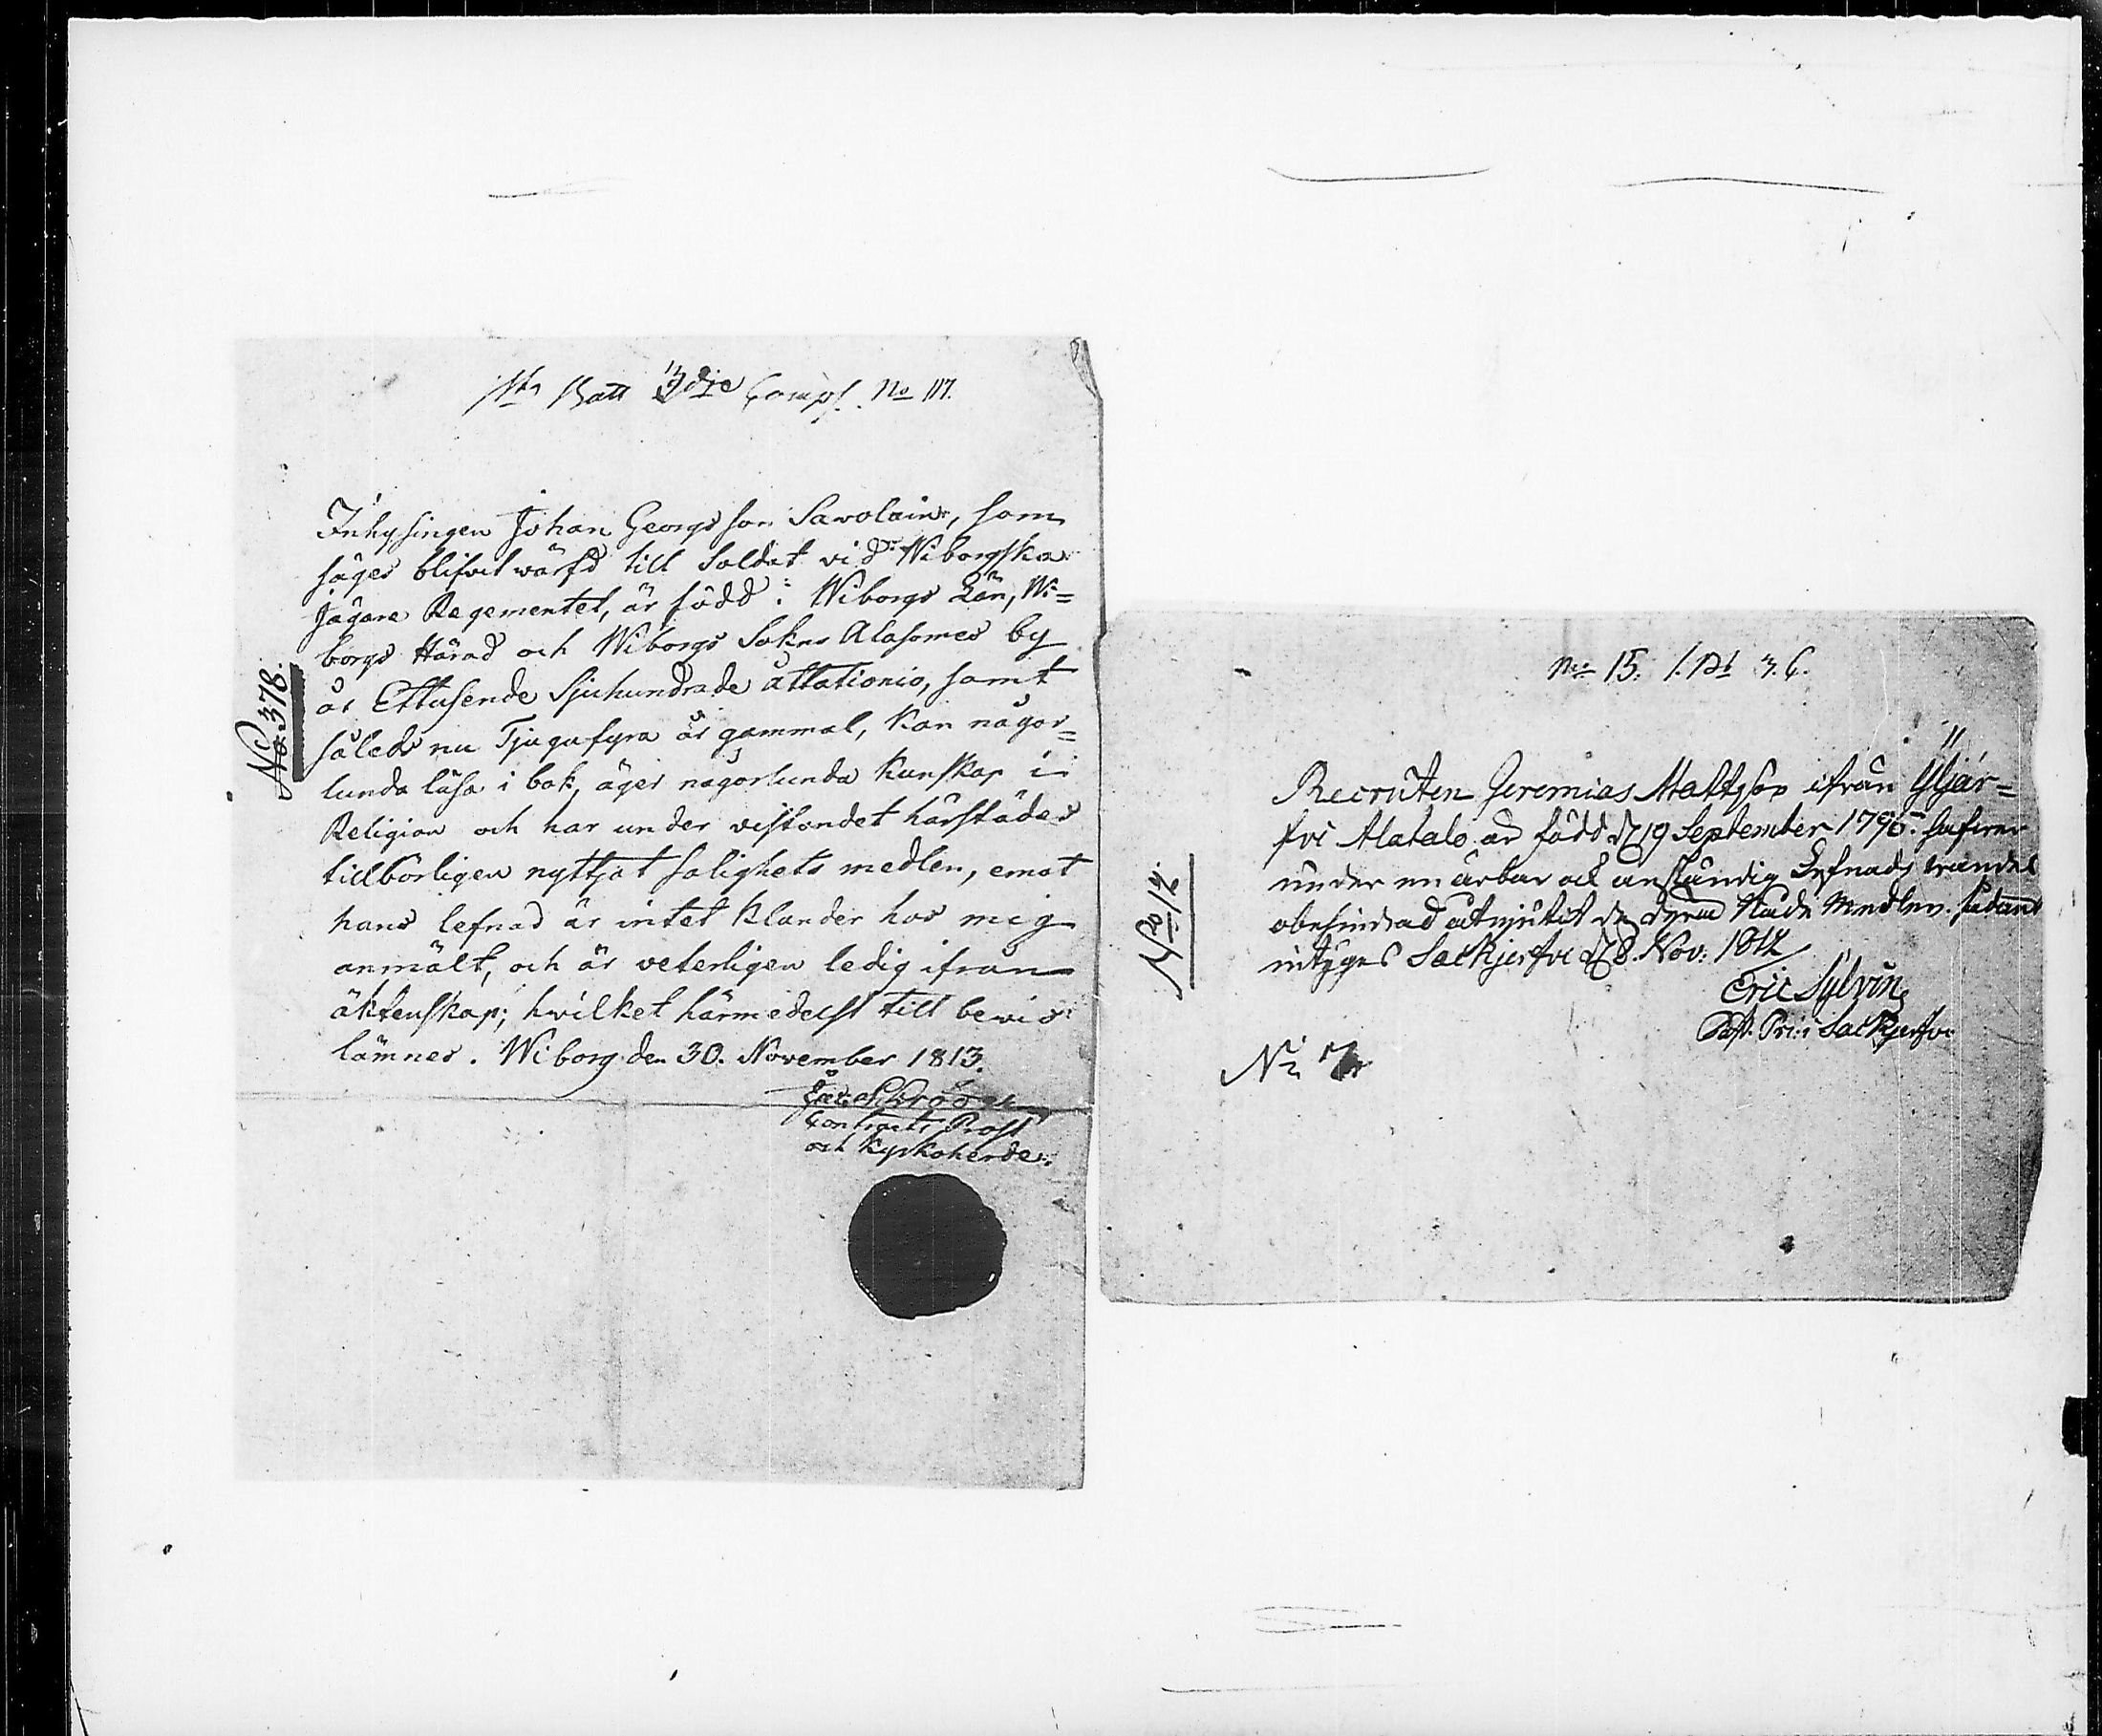 1sta Batt 3die Comp. No 117.
No. 378.
Inhysingen Johan Georgsson Savolain, som
säges blifvit wärfd till Soldat vid Wiborgska
Jägare Regementet, är född i Wiborgs Län, Wi=
borgs Härad och Wiborgs Sokns Alasomes by
år Ettusende Sjuhundrade åttationio, samt
således nu Tjugufyra år gammal, kan någor=
lunda läsa i bok, äger någorlunda kunskap i
Religion och har under vistandet härstädes
tillbörligen nyttjat salighets medlen, emot
hans lefnad är intet klander hos mig
anmält, och är veterligen ledig ifrån
äktenskap; hwilket härmedelst till bewis
lämnes. Wiborg den 30. November 1813.
Contracts Prost
och Kyrkoherde.
No 15. 1. Bt 3. C.
No 14.
Recruten Jeremias Mattsson ifrån Yljär=
fvi Alatalo är född d 19 September 1795.
under en ärbar och anständig Lefnads wandel
obehindrad åtnjutit de dyra Nåde Medlen. sådant
intygas Sackjerfvi d 8. Nov: 1812
Eric Sylvin
Past. Pr: i Sackjerfvi
No 7